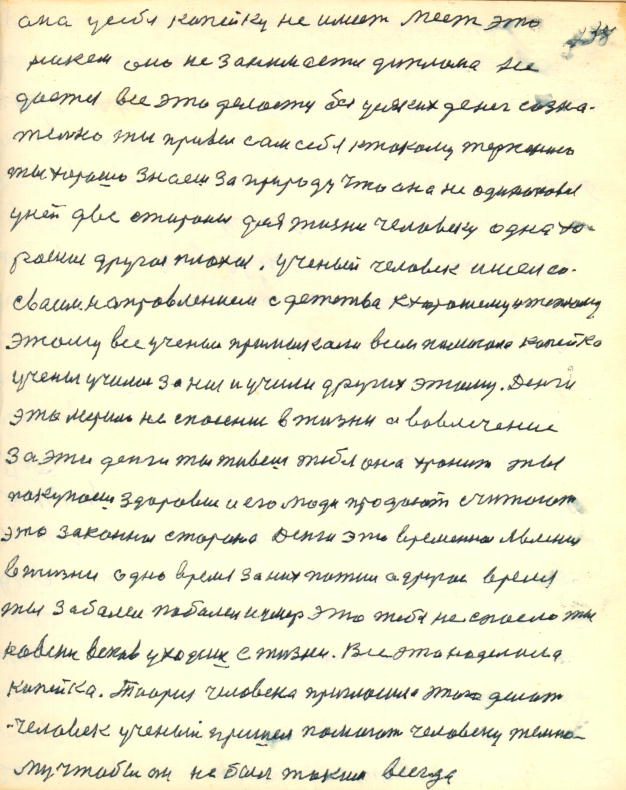 она у себя копейку не имеет место это
никем оно не занимается диплома не
дается все это делается без усяких денег созна-
телно ты привел сам себя к такому терпению
ты хорошо знаеш за природу что она не одинакова
у ней две стороны для жизни человеку одна хо-
рошая другая плохая. ученый человек имеет со-
сваим направлением с детства к хорошему и теплому
этому все учения примикали всем помогала копейка
ученыя учили за них и учили других этому. Денги
это мериль не спасение в жизни а вовлечение
За эти денги ты живеш тебя она хранит ты
покупаеш здоровие и его люди продают считают
это законная сторона Денги это временна явления
в жизни одно время за них пожил а другое время
ты забалел побалел и умер это тебя не спасло ты
на веки веков уходиш с жизни. Все это наделала
копейка. Теория человека пригласила этого делат
человек ученый пришел помогат человеку темно-
му чтобы он не был таким всегда